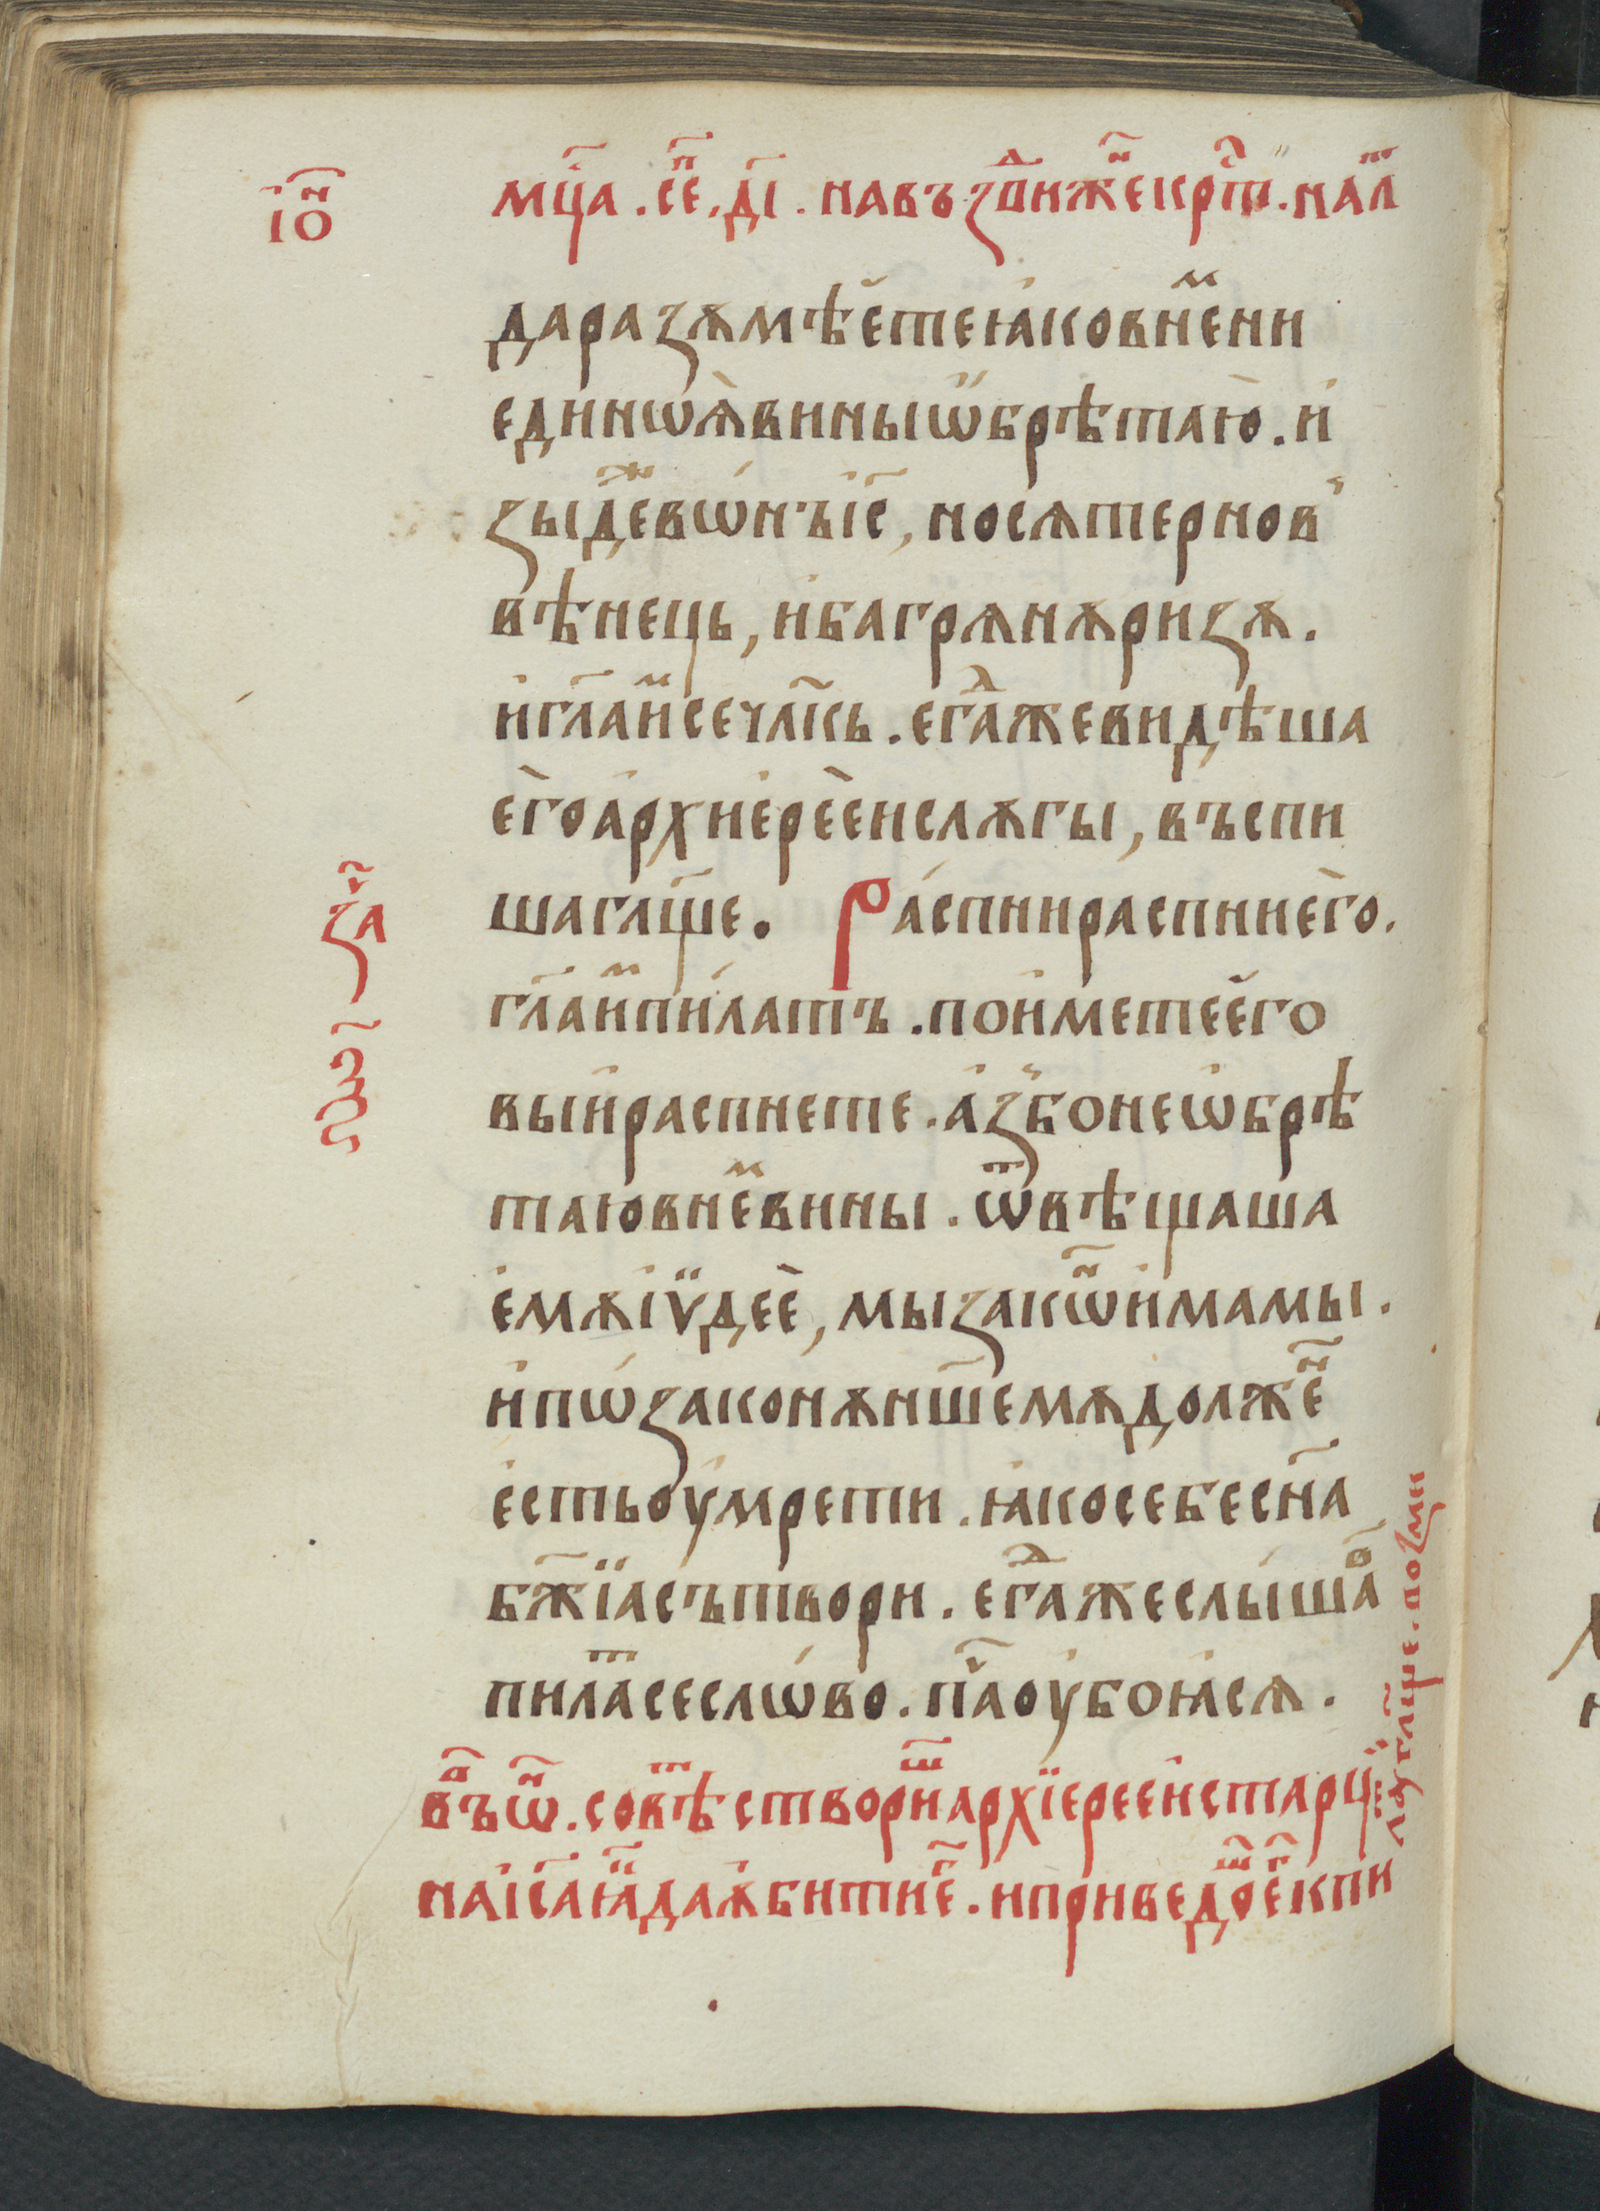 іѡ҃ⷩ
мцⷭ҇а . се҃ⷫ . ді҃ . на въздⷡ҇иже҃ⷩ крⷭ҇т . на лⷮ
да разѫмѣете ꙗко в не́ⷨ ни
единоѧ̀ вины ѡ҆брѣтаю̀ . и҆
зыдеⷤ во́нъ і҆с҃ , носѧ терновъ
вѣнець , и҆ багрѧнѫ ризѫ .
и҆ гл҃а и҆ⷨ се чл҃кь . егдⷣа же видѣша
ѐго а҆рхиерѐе и слѫгы , въспи
ша гл҃ще . Ра́спни распни ѐго .
гл҃а и҆ⷨ пи́латъ . пои҆мете е҆го
вы и҆ распнете . а҆зъ бо не ѡ҆брѣ
таю в не́ⷨ вины . ѿвѣщаша
е҆мѫ і҆ѵдеѐ , мы зако҃ⷩ и҆мамы .
и҆ по́ законѫ н҃шемѫ долже҃ⷩ
е҆сть оу҆мрети . ꙗ҆ко себе сн҃а
бж҃їа сътвори . егдⷣа же слы́шаⷡ
пилаⷮ се сло́во . па҃ⷱ оу҆боꙗ҆сѧ .
за҃ⷱ
ѯ҃
въ ѡ҃ⷩ . совѣⷮ створи҃ⷲ архїерее и҆ старци
на і҆с҃а ꙗⷦ҇ да ѫ҆бити е҃ⷢ . и приведоⷲ е҃ⷢ к пи
лѫ гл҃ще . поⷥми